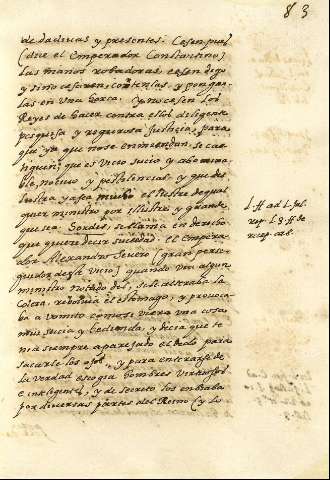 83
de dadiuas y presentes. Cesen pues
(dice el emperador Constantino)
las manos robadoras, cesen digo
y sino cesaren, cortenlas, y pongan
las en una horca. Y no cesen los
Reyes de hacer contra ellos diligente
pesquisa y rigurosa Justicia, para
que ya que no se enmiendan, se cas
tiguen; que es vicio sucio y abomina
ble, nociuo, y pestilencial y que des
lustra y afea mucho el lustre de qual
quier ministro por Illustre y grande
que sea. Sordes, se llama en derecho
que quiere decir suciedad. el empera
dor Alexandro Seuero (gran perse
guidor deste vicio) quando via algun
ministro notado del, se le alteraba la
colera, reboluia el estomago, y prouoca
ba a vomito como si viera una cosa
mui sucia y hedionda, y decia que te
nia siempre aparejado el dedo para
sacarle los ojos. y para enterarse de
la verdad escogia hombres virtuosos
e inteligentes, y de secreto los enbiaba
por diuersas partes del Reino (y lo
l. ff ad l. Jul.
rep. l. 8. ff de